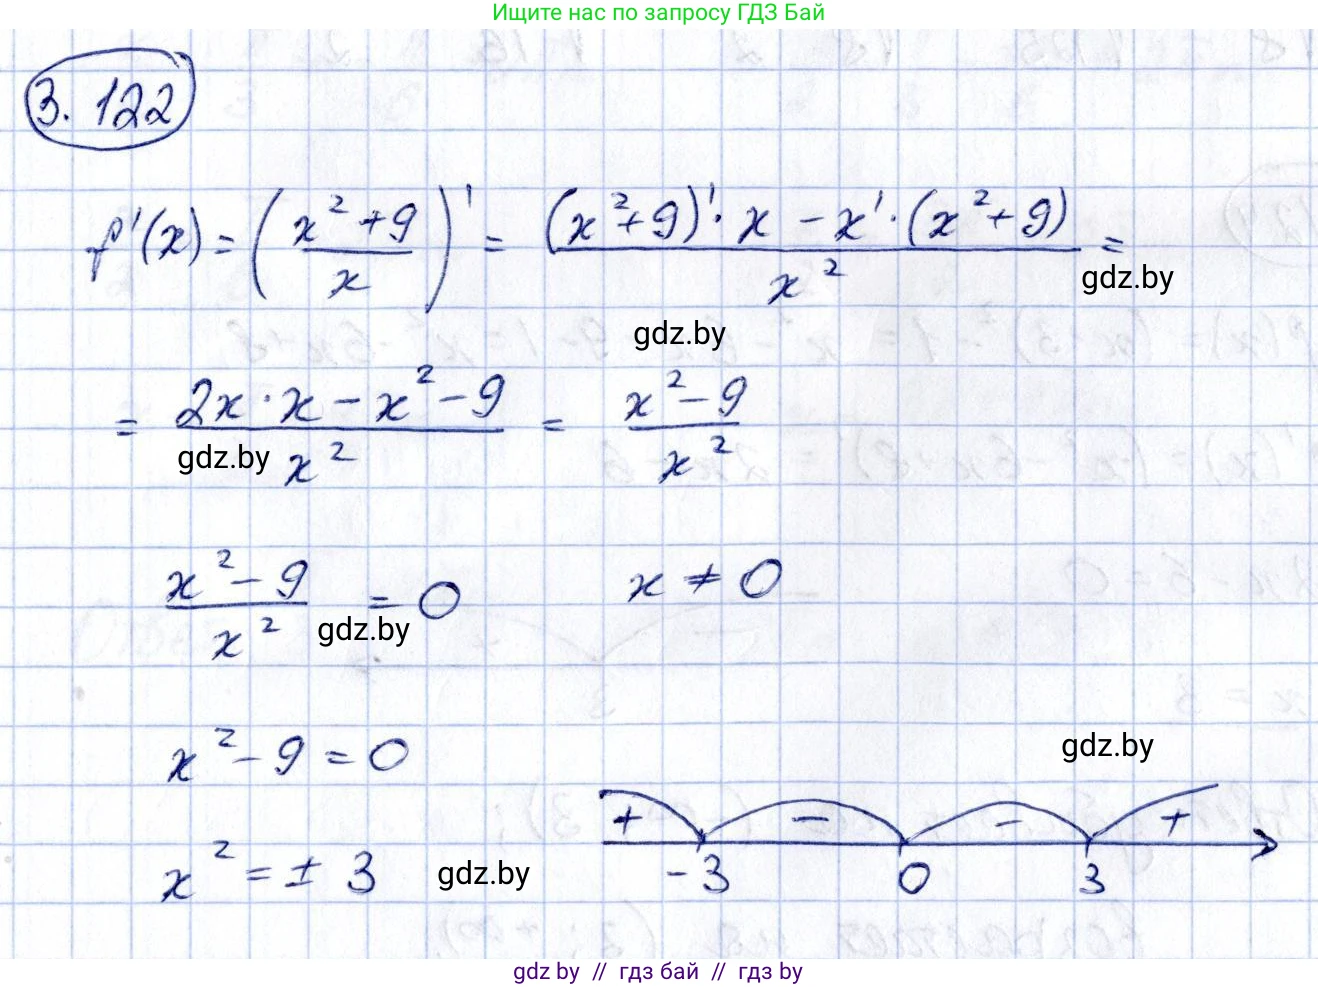 Ищите нас по запросу ГДЗ Бай
3. 122
f'(x) = ( (x² + 9) / x )' = ( (x² + 9)' · x − x' · (x² + 9) ) / x² =
gdz.by
gdz.by
= (2x · x − x² − 9) / x² = (x² − 9) / x²
gdz.by
(x² − 9) / x² = 0 x ≠ 0
gdz.by
x² − 9 = 0
gdz.by
+ − − +
x² = ± 3
gdz.by
-3 0 3
gdz by // гдз бай // гдз by